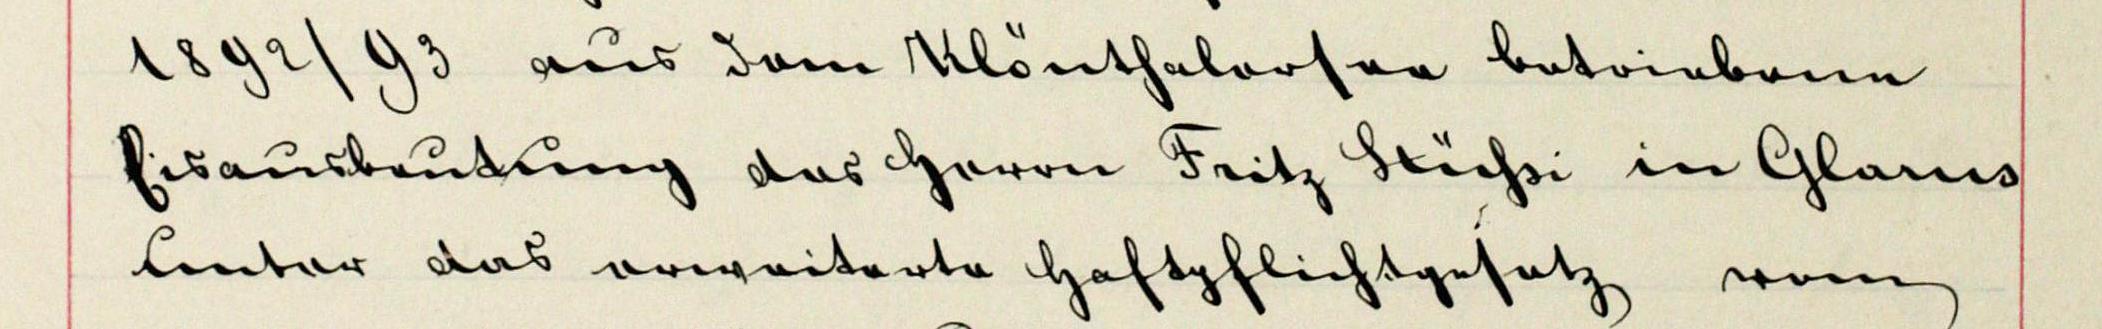 1892/93 aus dem Klönthalersee betriebene
Eisausbeutung des Herrn Fritz Stüßi in Glarus
unter das erweiterte Haftpflichtgesetz vom